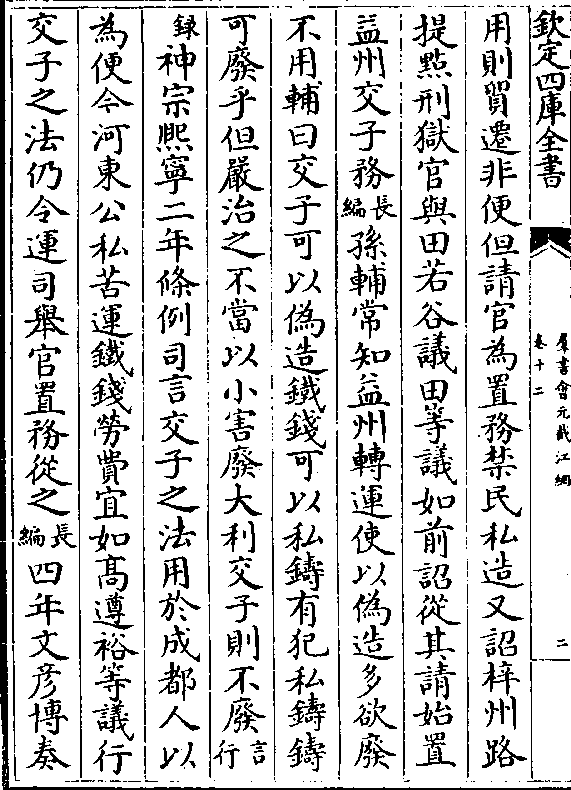 欽定四庫全書
羣書會元截江網
卷十二
二
用則貿遷非便但請官為置務禁民私造又詔梓州路
提點刑獄官與田若谷議田等議如前詔從其請始置
益州交子務長編孫輔常知益州轉運使以偽造多欲廢
不用輔曰交子可以偽造鐵錢可以私鑄有犯私鑄鑄
可廢乎但嚴治之不當以小害廢大利交子則不廢言行
録神宗熙寧二年條例司言交子之法用於成都人以
為便今河東公私苦運鐵錢勞費宜如髙遵裕等議行
交子之法仍令運司舉官置務從之長編四年文彦博奏